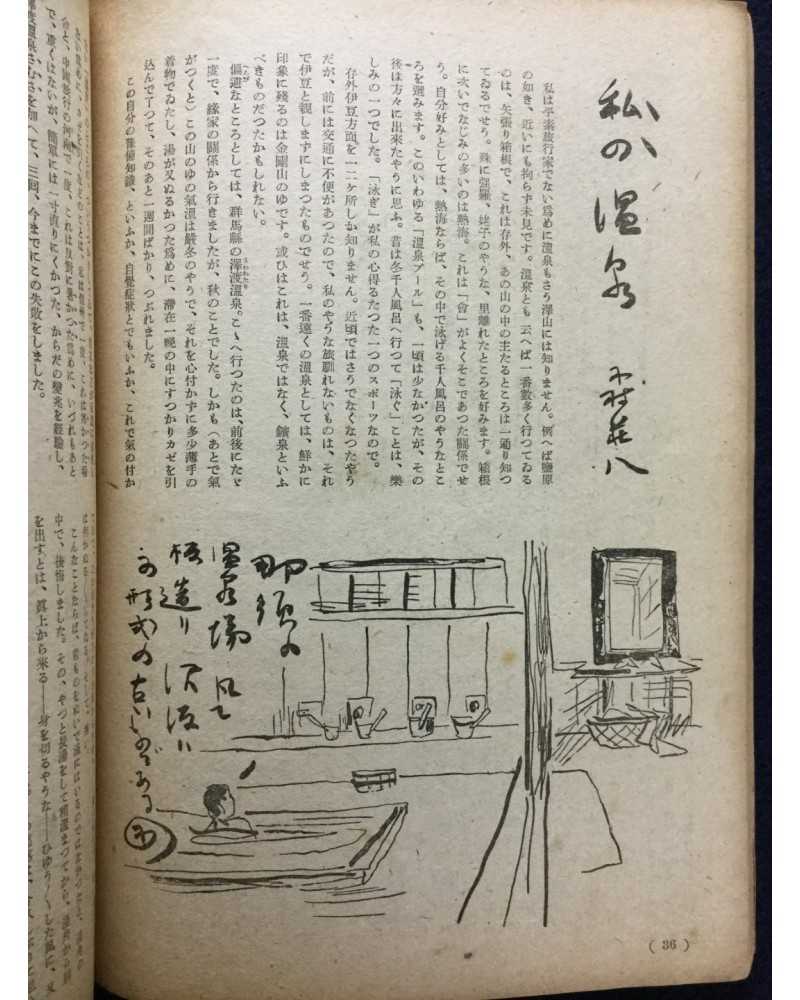 私の温泉
木村荘八
私は平素旅行家でない爲めに溫泉もさう澤山には知りません。例へば鹽原
の如き、近いにも拘らず未見です。溫泉とも云へば一番數多く行つてゐる
のは、矢張り箱根で、これは存外、あの山の中の主たるところは一通り知つ
てゐるでせう。殊に强羅、姥子のやうな、里離れたところを好みます。箱根
に次いでなじみの多いのは熱海。これは「會」がよくそこであつた關係でせ
う。自分好みとしては、熱海ならば、その中で泳げる千人風呂のやうなとこ
ろを選みます。このいわゆる「溫泉プール」も、一頃は少なかつたが、その
後は方々に出來たやうに思ふ。昔は冬千人風呂へ行つて「泳ぐ」ことは、樂
しみの一つでした。「泳ぎ」が私の心得るたつた一つのスポーツなので。
存外伊豆方面を一二ケ所しか知りません。近頃ではさうでなくなつたやう
だが、前には交通に不便があつたので、私のやうな旅馴れないものは、それ
で伊豆と親しまずにしまつたものでせう。一番遠くの溫泉としては、鮮かに
印象に殘るのは金剛山のゆです。或ひはこれは、溫泉ではなく、鑛泉といふ
べきものだつたかもしれない。
偏避なところとしては、群馬縣の澤渡溫泉。こゝへ行つたのは、前後にたゞ
一度で、緣家の關係から行きましたが、秋のことでした。しかも(あとで氣
がつくと)この山のゆの氣溫は嚴冬のやうで、それを心付かずに多少薄手の
着物でゐたし、湯が又ぬるかつた爲めに、滯在一晩の中にすつかりカゼを引
込んで了つて、そのあと一週間ばかり、つぶれました。
この自分の豫備知識、といふか、自覺症狀とでもいふか、これで氣の付か
で、重くはないが、簡單には一寸直りにくかつた、からだの變兆を經驗し、
澤渡溫泉
を加へて、三回、今までにこの失敗をしました。
那須の
温泉場
沢
形式の古いものである
こんなことならば、
中で、後悔しました。その、やつと長湯をして
を出すとは、眞上から來る──身を切るやうな──ひゆう〱した風に、又
( 36 )